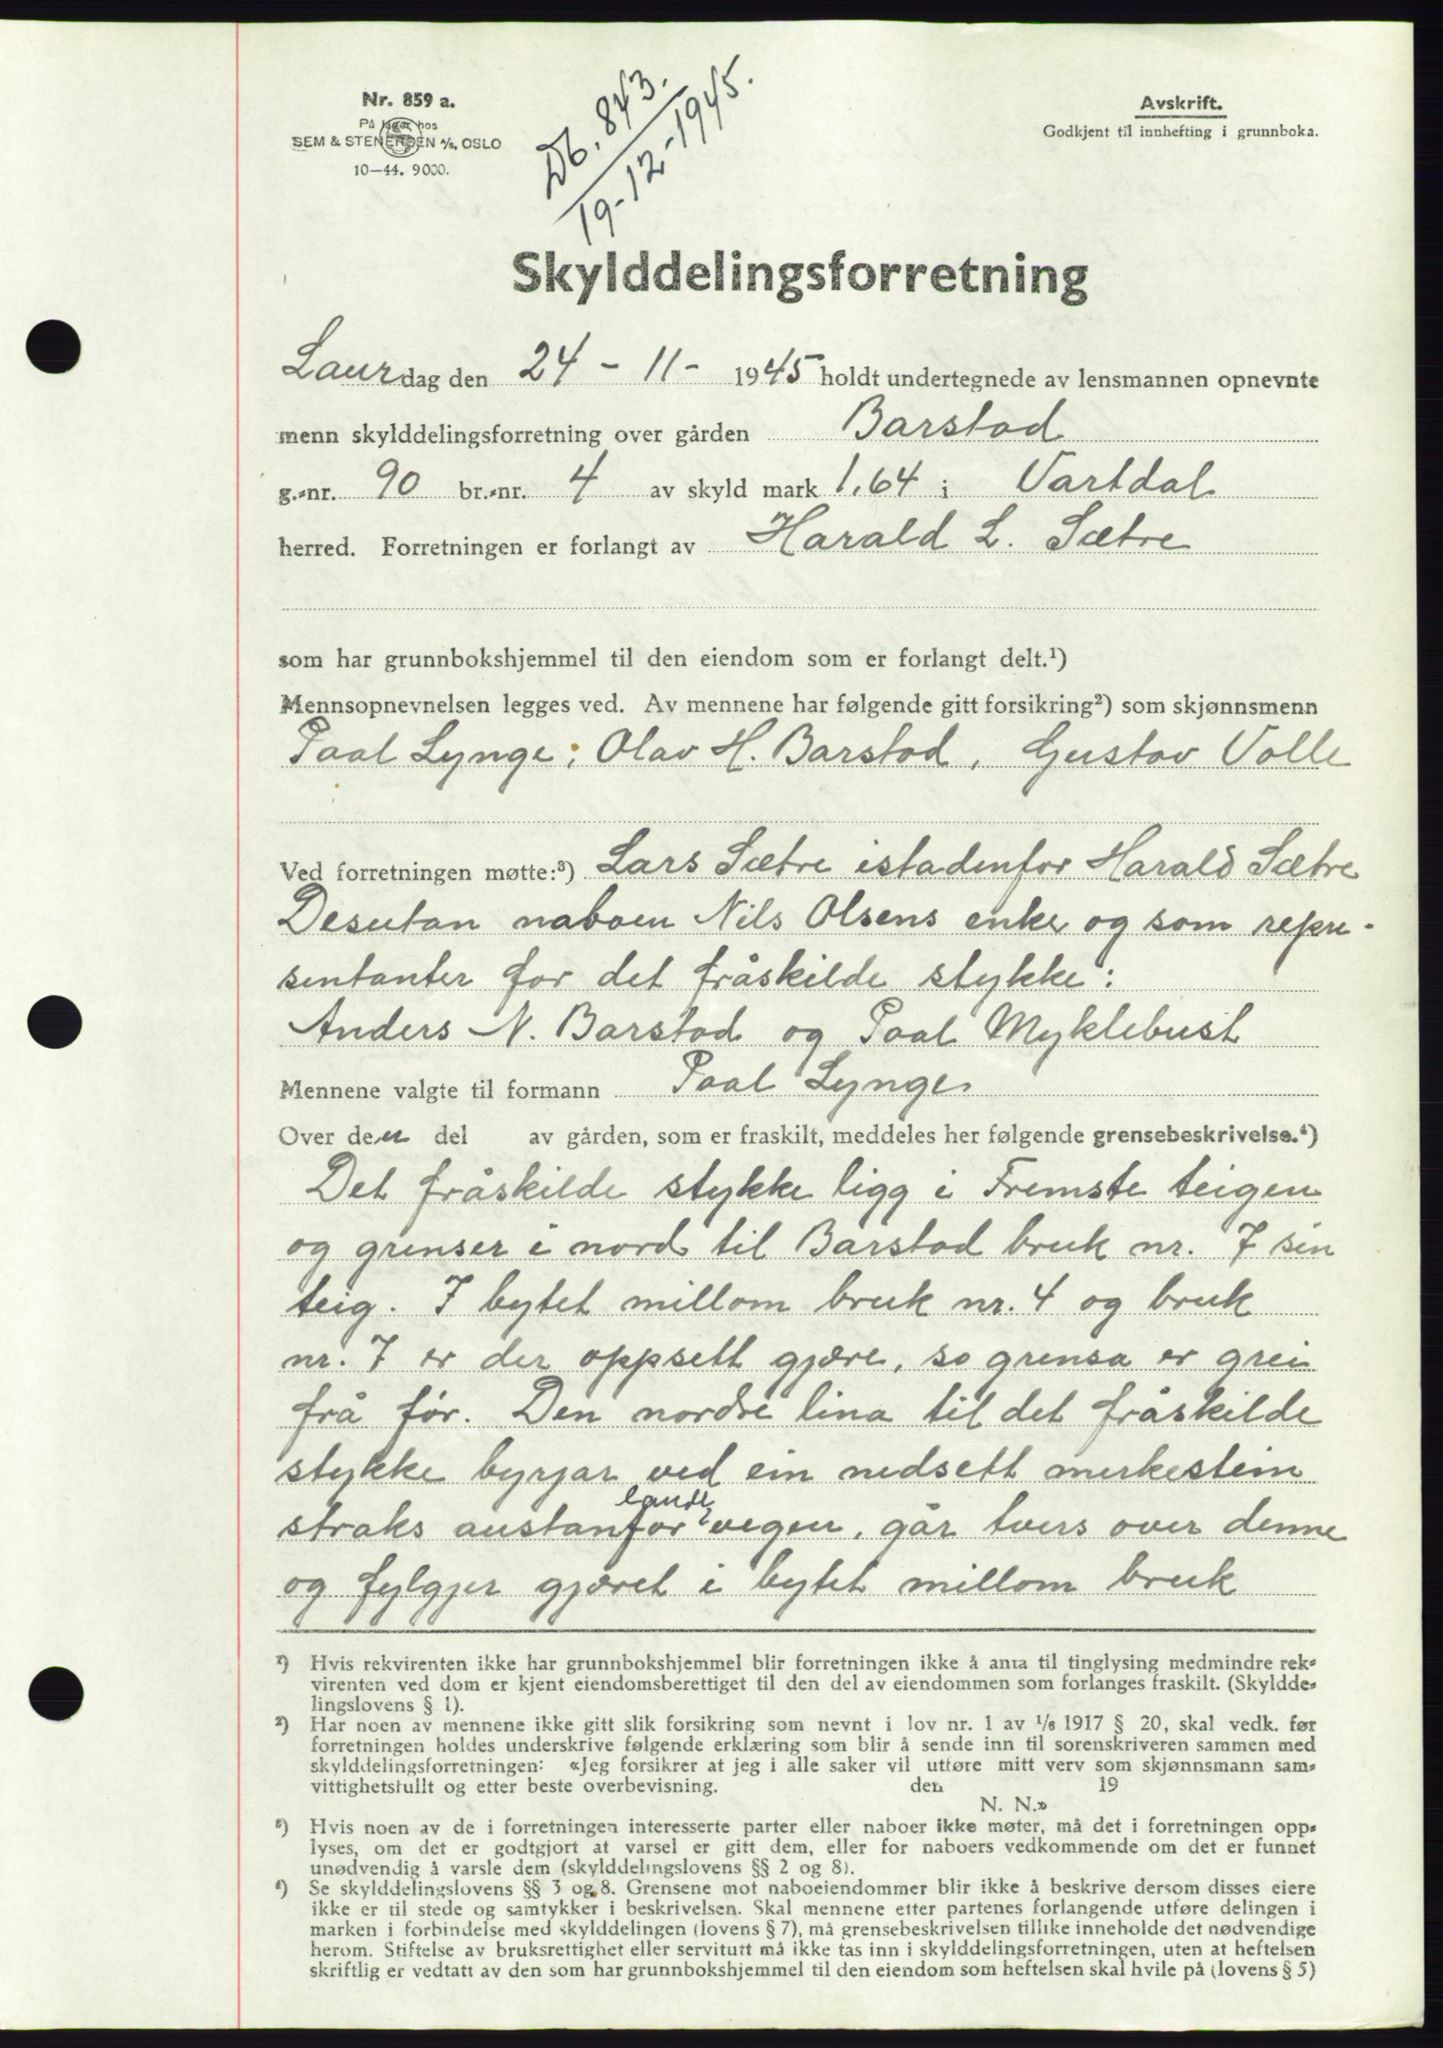 Nr. 859 a.
På lager hos
SEM & STENERSEN A/S, OSLO
10—44. 9000.
Db. 843.
19-12-1945.
Avskrift.
Godkjent til innhefting i grunnboka.
Skylddelingsforretning
Laurdag den 24 - 11 - 1945 holdt undertegnede av lensmannen opnevnte
menn skylddelingsforretning over gården Barstad
g.-nr. 90 br.-nr. 4 av skyld mark 1,64 i Vartdal
herred. Forretningen er forlangt av Harald L. Sætre
som har grunnbokshjemmel til den eiendom som er forlangt delt.¹)
Mennsopnevnelsen legges ved. Av mennene har følgende gitt forsikring²) som skjønnsmenn
Paal Lynge, Olav H. Barstad, Gustav Valle
Ved forretningen møtte:³) Lars Sætre istadenfor Harald Sætre
Desutan naboen Nils Olsens enke og som repre-
sentanter for det fråskilde stykke:
Anders N. Barstad og Paal Myklebust
Mennene valgte til formann Paal Lynge.
Over den del av gården, som er fraskilt, meddeles her følgende grensebeskrivelse.⁴)
Det fråskilde stykke ligg i Fremste teigen
og grenser i nord til Barstad bruk nr. 7 sin
teig. I bytet millom bruk nr. 4 og bruk
nr. 7 er der oppsett gjære, so grensa er grei
frå før. Den nordre lina til det fråskilde
stykke byrjar ved ein nedsett merkestein
straks austanfor landevegen, går tvers over denne
og fylgjer gjæret i bytet millom bruk
¹) Hvis rekvirenten ikke har grunnbokshjemmel blir forretningen ikke å anta til tinglysing medmindre rek-
virenten ved dom er kjent eiendomsberettiget til den del av eiendommen som forlanges fraskilt. (Skyldde-
lingslovens § 1).
²) Har noen av mennene ikke gitt slik forsikring som nevnt i lov nr. 1 av 1/6 1917 § 20, skal vedk. før
forretningen holdes underskrive følgende erklæring som blir å sende inn til sorenskriveren sammen med
skylddelingsforretningen: «Jeg forsikrer at jeg i alle saker vil utføre mitt verv som skjønnsmann sam-
vittighetsfullt og etter beste overbevisning. den 19
N. N.»
³) Hvis noen av de i forretningen interesserte parter eller naboer ikke møter, må det i forretningen opp-
lyses, om det er godtgjort at varsel er gitt dem, eller for naboers vedkommende om det er funnet
unødvendig å varsle dem (skylddelingslovens §§ 2 og 8).
⁴) Se skylddelingslovens §§ 3 og 8. Grensene mot naboeiendommer blir ikke å beskrive dersom disses eiere
ikke er til stede og samtykker i beskrivelsen. Skal mennene etter partenes forlangende utføre delingen i
marken i forbindelse med skylddelingen (lovens § 7), må grensebeskrivelsen tillike inneholde det nødvendige
herom. Stiftelse av bruksrettighet eller servitutt må ikke tas inn i skylddelingsforretningen, uten at heftelsen
skriftlig er vedtatt av den som har grunnbokshjemmel til den eiendom som heftelsen skal hvile på (lovens § 5)